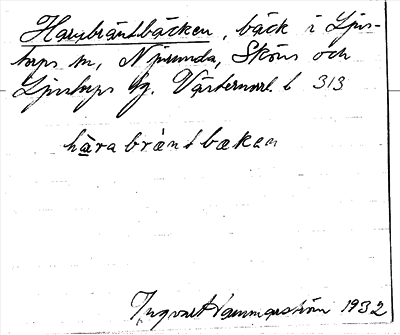 Harubräntbäcken, bäck i Ljus-
torps sn, Njurunda, Sköns och
Ljustorps tg. Västernorrl. l 313
hårabräntbæken
Ingvar Hammarström 1932